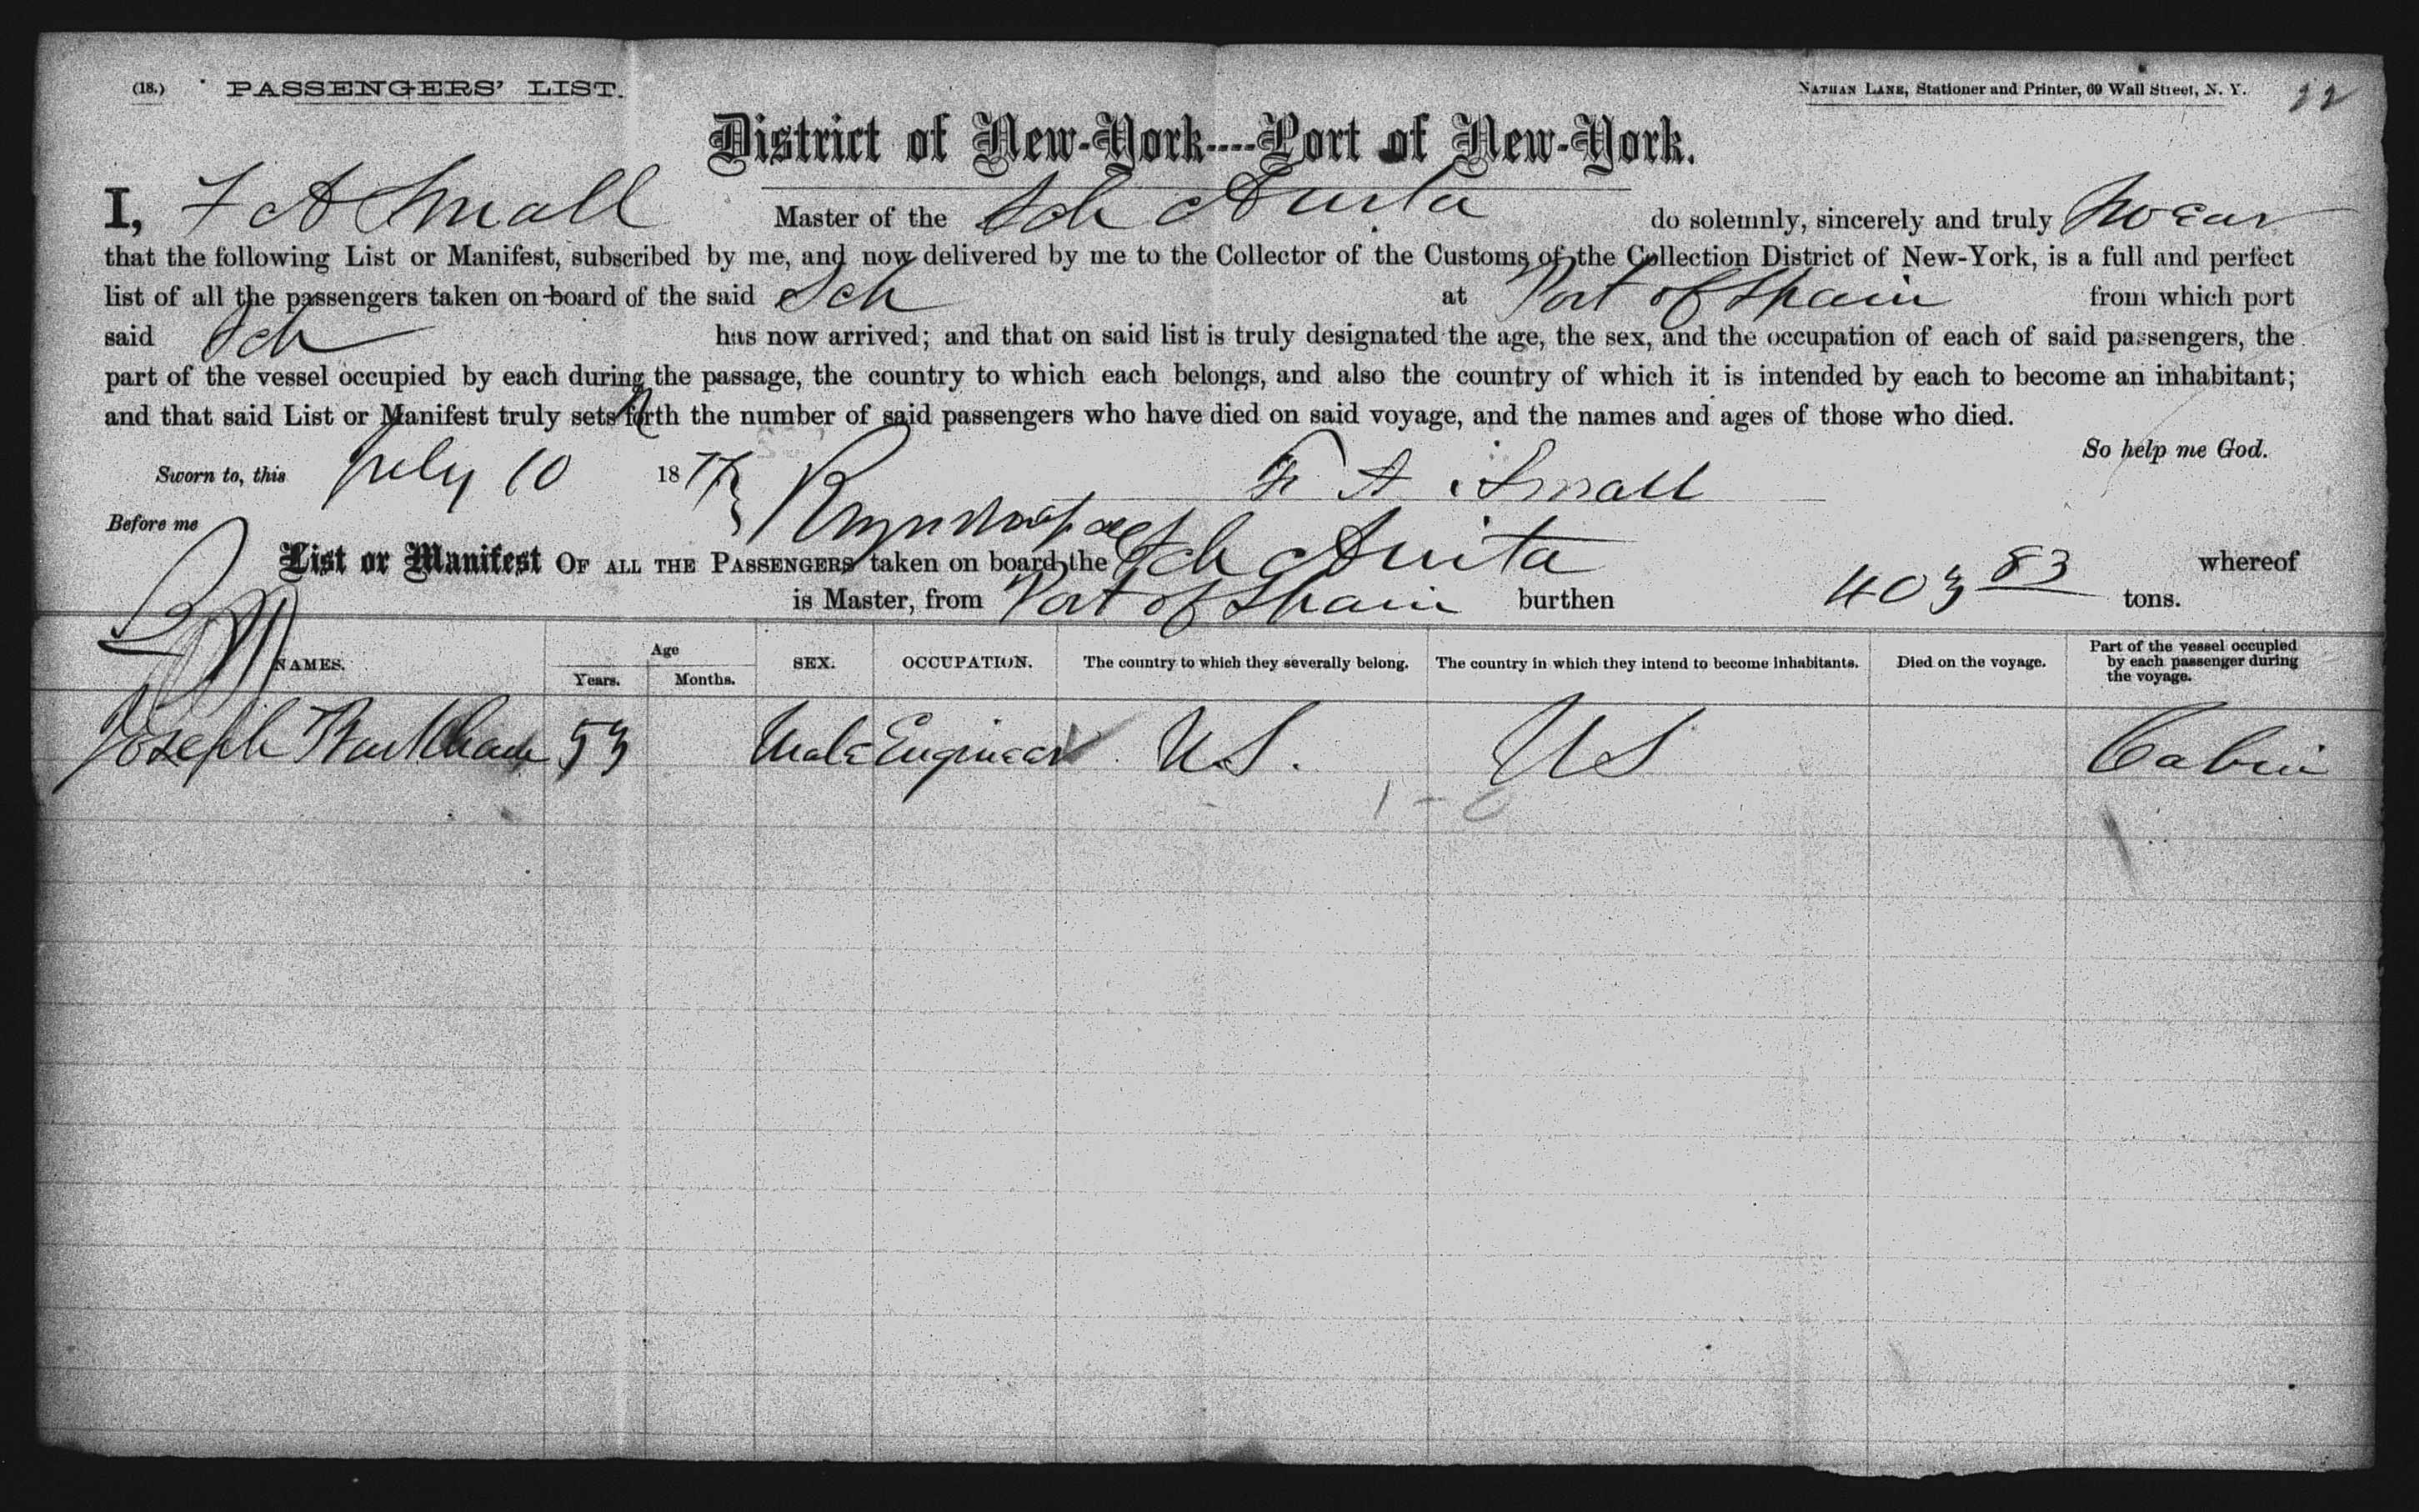 (18.) PASSENGERS' LIST. NATHAN LANE, Stationer and Printer, 69 Wall Street, N. Y. 22
District of New-York----Port of New-York.
I, F A Small Master of the Sch Anita do solemnly, sincerely and truly swear
that the following List or Manifest, subscribed by me, and now delivered by me to the Collector of the Customs of the Collection District of New-York, is a full and perfect
list of all the passengers taken on board of the said Sch at Port of Spain from which port
said Sch has now arrived; and that on said list is truly designated the age, the sex, and the occupation of each of said passengers, the
part of the vessel occupied by each during the passage, the country to which each belongs, and also the country of which it is intended by each to become an inhabitant;
and that said List or Manifest truly sets forth the number of said passengers who have died on said voyage, and the names and ages of those who died.
So help me God.
Sworn to, this July 10 1877 F. A. Small
Before me
List or Manifest OF ALL THE PASSENGERS taken on board the Sch Anita whereof
is Master, from Port of Spain burthen 403 83 tons.
NAMES. Age Years. Months. SEX. OCCUPATION. The country to which they severally belong. The country in which they intend to become inhabitants. Died on the voyage. Part of the vessel occupied by each passenger during the voyage.
Joseph 53 Male Engineer U.S. US Cabin